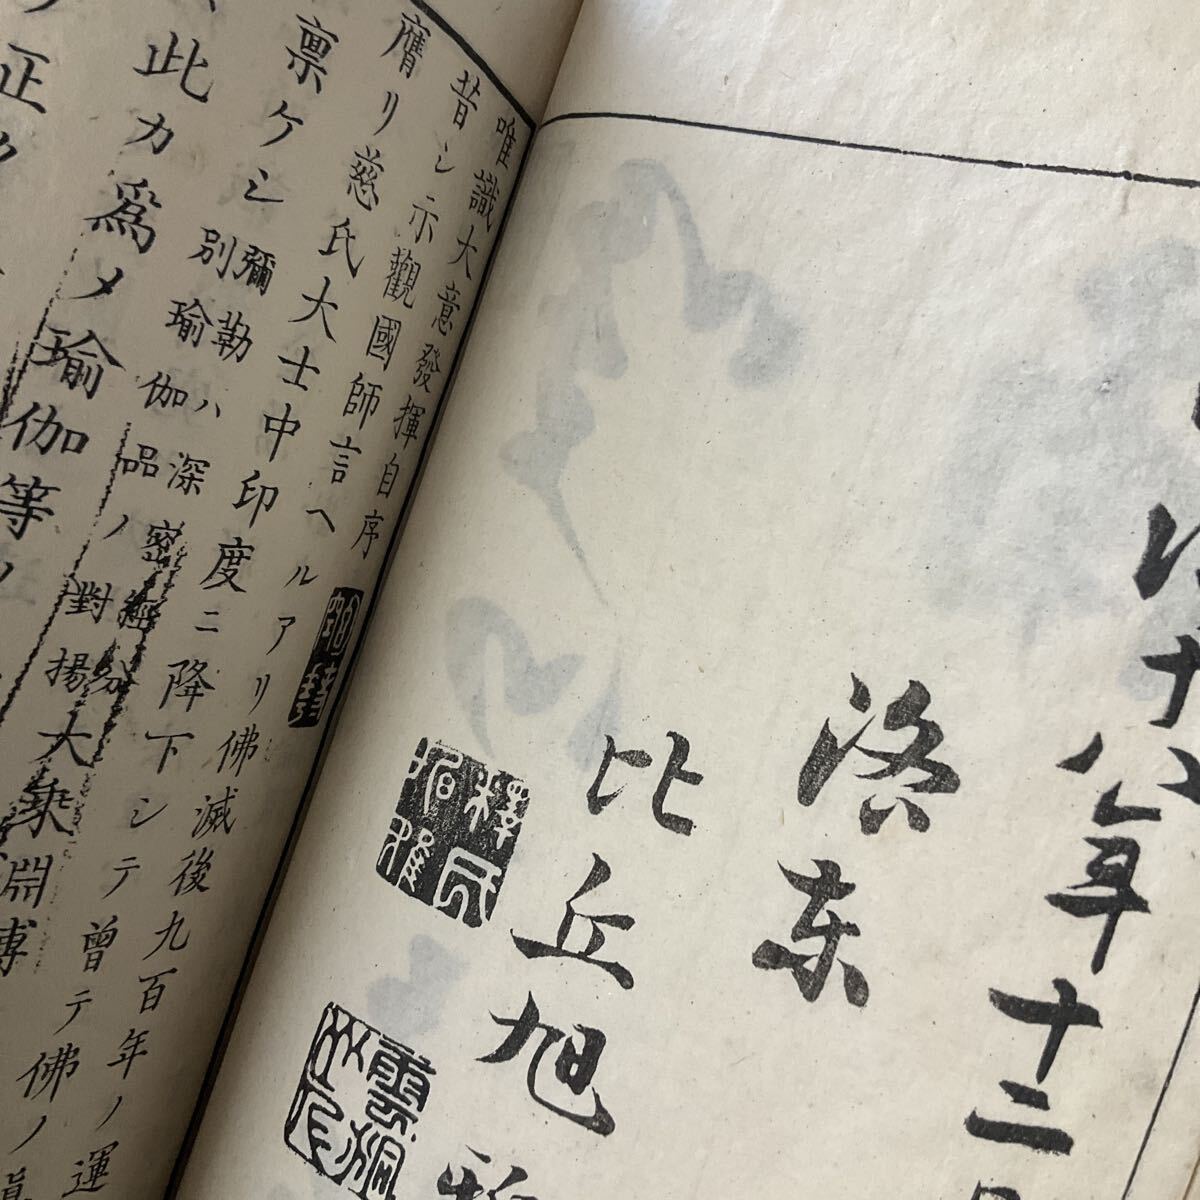 治十八年十二
洛東
比丘旭雅
釋氏
唯識大意發揮自序
昔シ示觀國師言ヘルアリ佛滅後九百年ノ運
膺リ慈氏大士中印度ニ降下シテ曾テ佛ノ眞
稟ケシ彌勒ハ深密經分別瑜伽品ノ對揚大乘淵博
此カ爲メ瑜伽等ノ
正